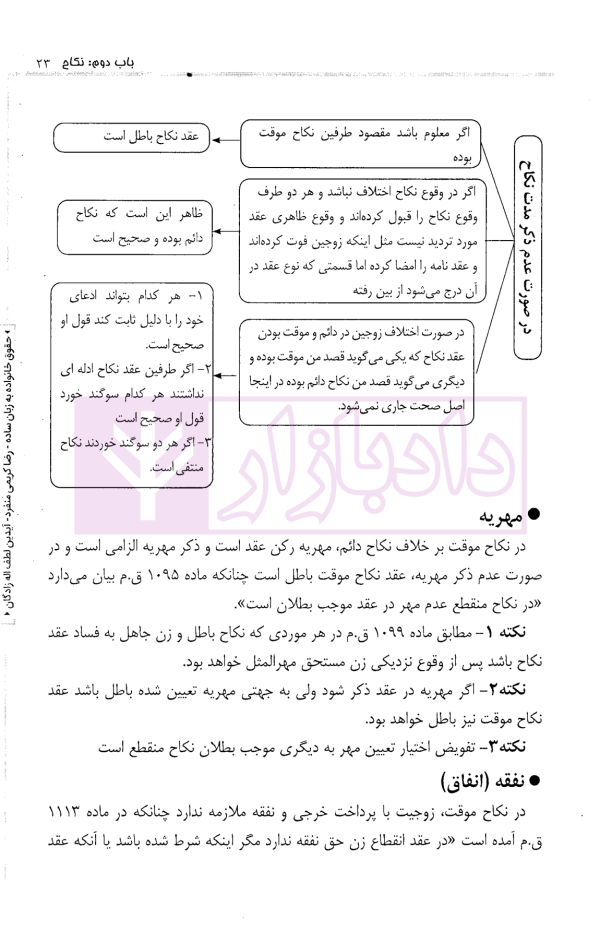 باب دوم: نکاح ۲۳
در صورت عدم ذکر مدت نکاح
اگر معلوم باشد مقصود طرفین نکاح موقت
بوده
عقد نکاح باطل است
اگر در وقوع نکاح اختلاف نباشد و هر دو طرف
وقوع نکاح را قبول کرده‌اند و وقوع ظاهری عقد
مورد تردید نیست مثل اینکه زوجین فوت کرده‌اند
و عقد نامه را امضا کرده اما قسمتی که نوع عقد در
آن درج می‌شود از بین رفته
ظاهر این است که نکاح
دائم بوده و صحیح است
در صورت اختلاف زوجین در دائم و موقت بودن
عقد نکاح که یکی می‌گوید قصد من موقت بوده و
دیگری می‌گوید قصد من نکاح دائم بوده در اینجا
اصل صحت جاری نمی‌شود.
۱- هر کدام بتواند ادعای
خود را با دلیل ثابت کند قول او
صحیح است.
۲- اگر طرفین عقد نکاح ادله ای
نداشتند هر کدام سوگند خورد
قول او صحیح است
۳- اگر هر دو سوگند خوردند نکاح
منتفی است.
دادبازار
● مهریه
در نکاح موقت بر خلاف نکاح دائم، مهریه رکن عقد است و ذکر مهریه الزامی است و در
صورت عدم ذکر مهریه، عقد نکاح موقت باطل است چنانکه ماده ۱۰۹۵ ق.م بیان می‌دارد
«در نکاح منقطع عدم مهر در عقد موجب بطلان است».
نکته ۱- مطابق ماده ۱۰۹۹ ق.م در هر موردی که نکاح باطل و زن جاهل به فساد عقد
نکاح باشد پس از وقوع نزدیکی زن مستحق مهرالمثل خواهد بود.
نکته۲- اگر مهریه در عقد ذکر شود ولی به جهتی مهریه تعیین شده باطل باشد عقد
نکاح موقت نیز باطل خواهد بود.
نکته۳- تفویض اختیار تعیین مهر به دیگری موجب بطلان نکاح منقطع است
● نفقه (انفاق)
در نکاح موقت، زوجیت با پرداخت خرجی و نفقه ملازمه ندارد چنانکه در ماده ۱۱۱۳
ق.م آمده است «در عقد انقطاع زن حق نفقه ندارد مگر اینکه شرط شده باشد یا آنکه عقد
حقوق خانواده به زبان ساده - رضا کریمی منفرد - آیدین لطف اله زادگان